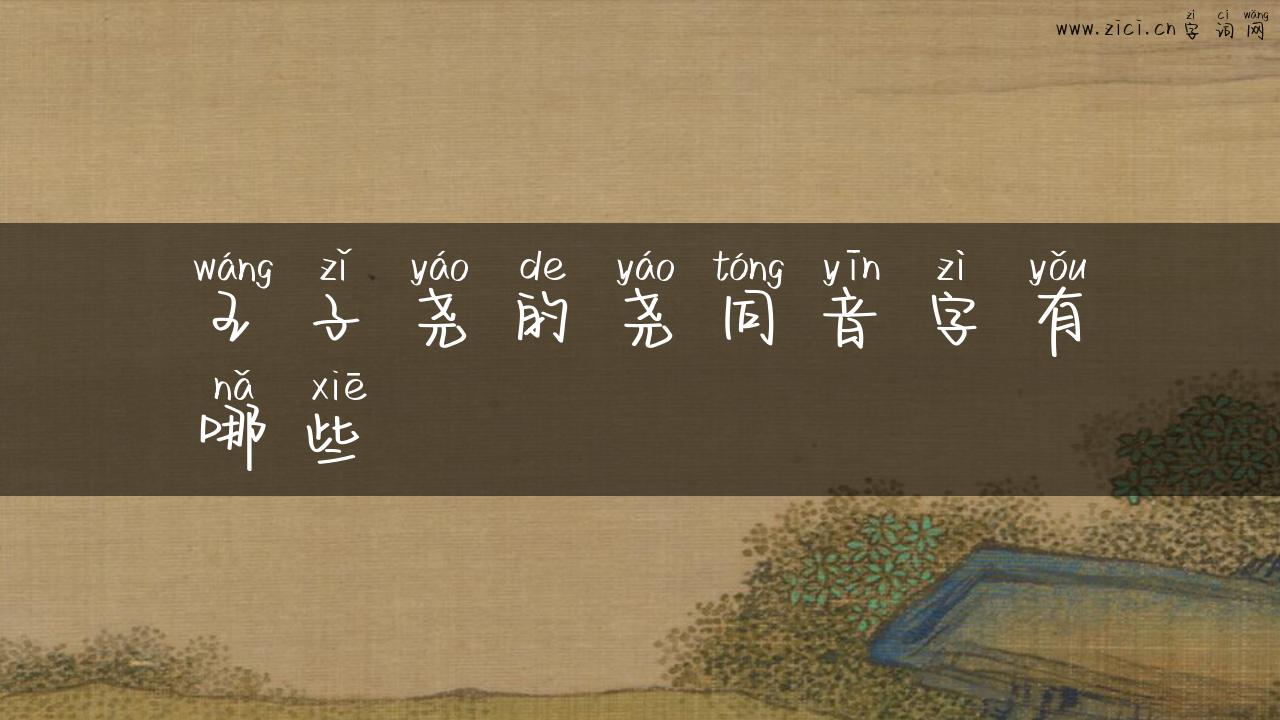 www.zici.cn 字词网
zì cí wǎng
wáng zǐ yáo de yáo tóng yīn zì yǒu
王子尧的尧同音字有
nǎ xiē
哪些